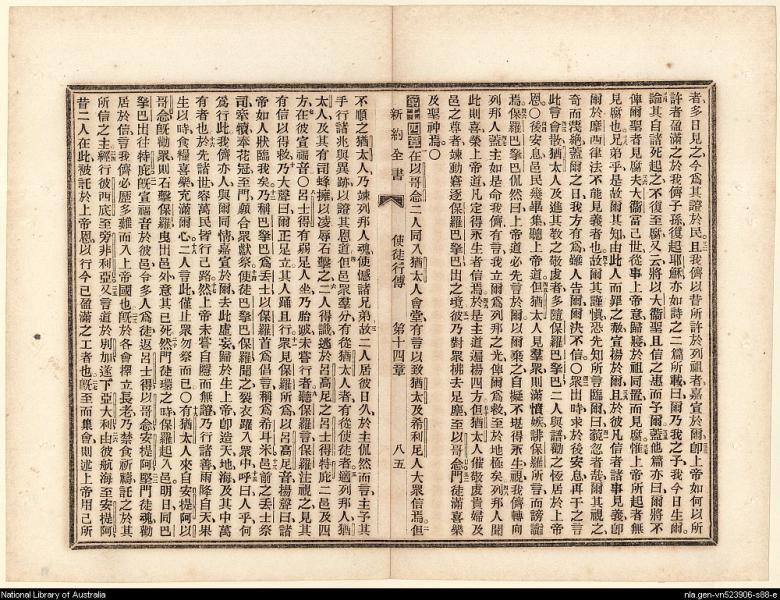 者多日見之今爲其證於民且我儕以昔所許於列祖者嘉宣於爾卽上帝如何以所
許者盈滿之於我儕子孫復起耶穌亦如詩之二篇所載曰爾乃我之子我今日生爾
論其自諸死起之不復至腐又云將以大衞聖且信之惠而予爾蓋他篇亦曰爾將不
俾爾聖者見腐夫大衞當己世從事上帝意歸寢於祖同置而見腐惟上帝所起者無
見腐也兄弟乎是故爾其知由此人而罪之赦宣揚於爾且於彼凡信者諸事見義卽
爾於摩西律法不能見義者也故爾其謹慎恐先知所言臨爾曰藐忽者哉爾其視之
奇而淺絶蓋爾之日我方有爲雖人告爾爾決不信〇衆出時求於後安息再于之言
此言會散猶太人及進其敎之敬虔者多隨保羅巴拏巴二人與語勸之恆居於上帝
恩〇後安息邑民幾畢集聽上帝道但猶太人見羣衆則滿憤嫉誹保羅所言而謗讟
焉保羅巴拏巴侃然曰上帝道必先言於爾以爾棄之自擬不堪得永生視我儕轉向
列邦人蓋主如是命我儕有言我立爾爲列邦之光俾爾爲救至於地極矣列邦人聞
此則喜榮上帝道凡定得永生者信焉於是主道遍揚四方但猶太人催敬虔貴婦及
邑之尊者竦動窘逐保羅巴拏巴出之境彼乃對衆拂去足塵至以哥念門徒滿喜樂
及聖神焉〇
第十四章在以哥念二人同入猶太人會堂有言以致猶太及希利尼人大衆信焉但
新約全書 使徒行傳 第十四章 八五
不順之猶太人乃竦列邦人魂使憾諸兄弟故二人居彼日久於主侃然而言主予其
手行諸兆與異跡以證其恩道但邑衆羣分有從猶太人者有從使徒者適列邦人猶
太人及其有司蜂擁以凌辱石擊之二人得識逃於呂高尼之呂士得特庇二邑及四
方在彼宣福音〇呂士得有弱足人坐乃胎跛未嘗行者聽保羅言保羅注視之見其
有信以得救乃大聲曰爾正足立其人踊且行衆見保羅所爲以呂高尼音揚聲曰諸
帝如人狀臨我矣乃稱巴拏巴爲丟士以保羅首爲倡言稱爲希耳米邑前之丟士祭
司牽犢奉花冠至門願合衆獻祭使徒巴拏巴保羅聞之裂衣躍入衆中呼曰人乎何
爲行此我儕亦人與爾同情嘉宣於爾去此虛妄歸於生上帝卽造天地海及其中萬
有者也於先諸世容萬民皆行己路然上帝未嘗自隱而無證乃行諸善雨降自天果
生以時食糧喜樂充滿爾心二人言此僅止衆勿祭而已〇有猶太人來自安提阿以
哥念旣勸衆則石擊保羅曳出邑外意其已死然門徒環之時保羅起入邑明日同巴
拏巴出往特庇旣宣福音於彼邑令多人爲徒返呂士得以哥念安提阿堅門徒魂勸
居於信言我儕必歷多難而入上帝國也旣於各會擇立長老乃禁食祈禱託之於其
所信之主經行彼西底至旁非利亞又言道於別加遂下亞大利由彼航海至安提阿
昔二人在此被託於上帝恩以行今已盈滿之工者也旣至而集會則述上帝用己所
National Library of Australia
nla.gen-vn523906-s88-e